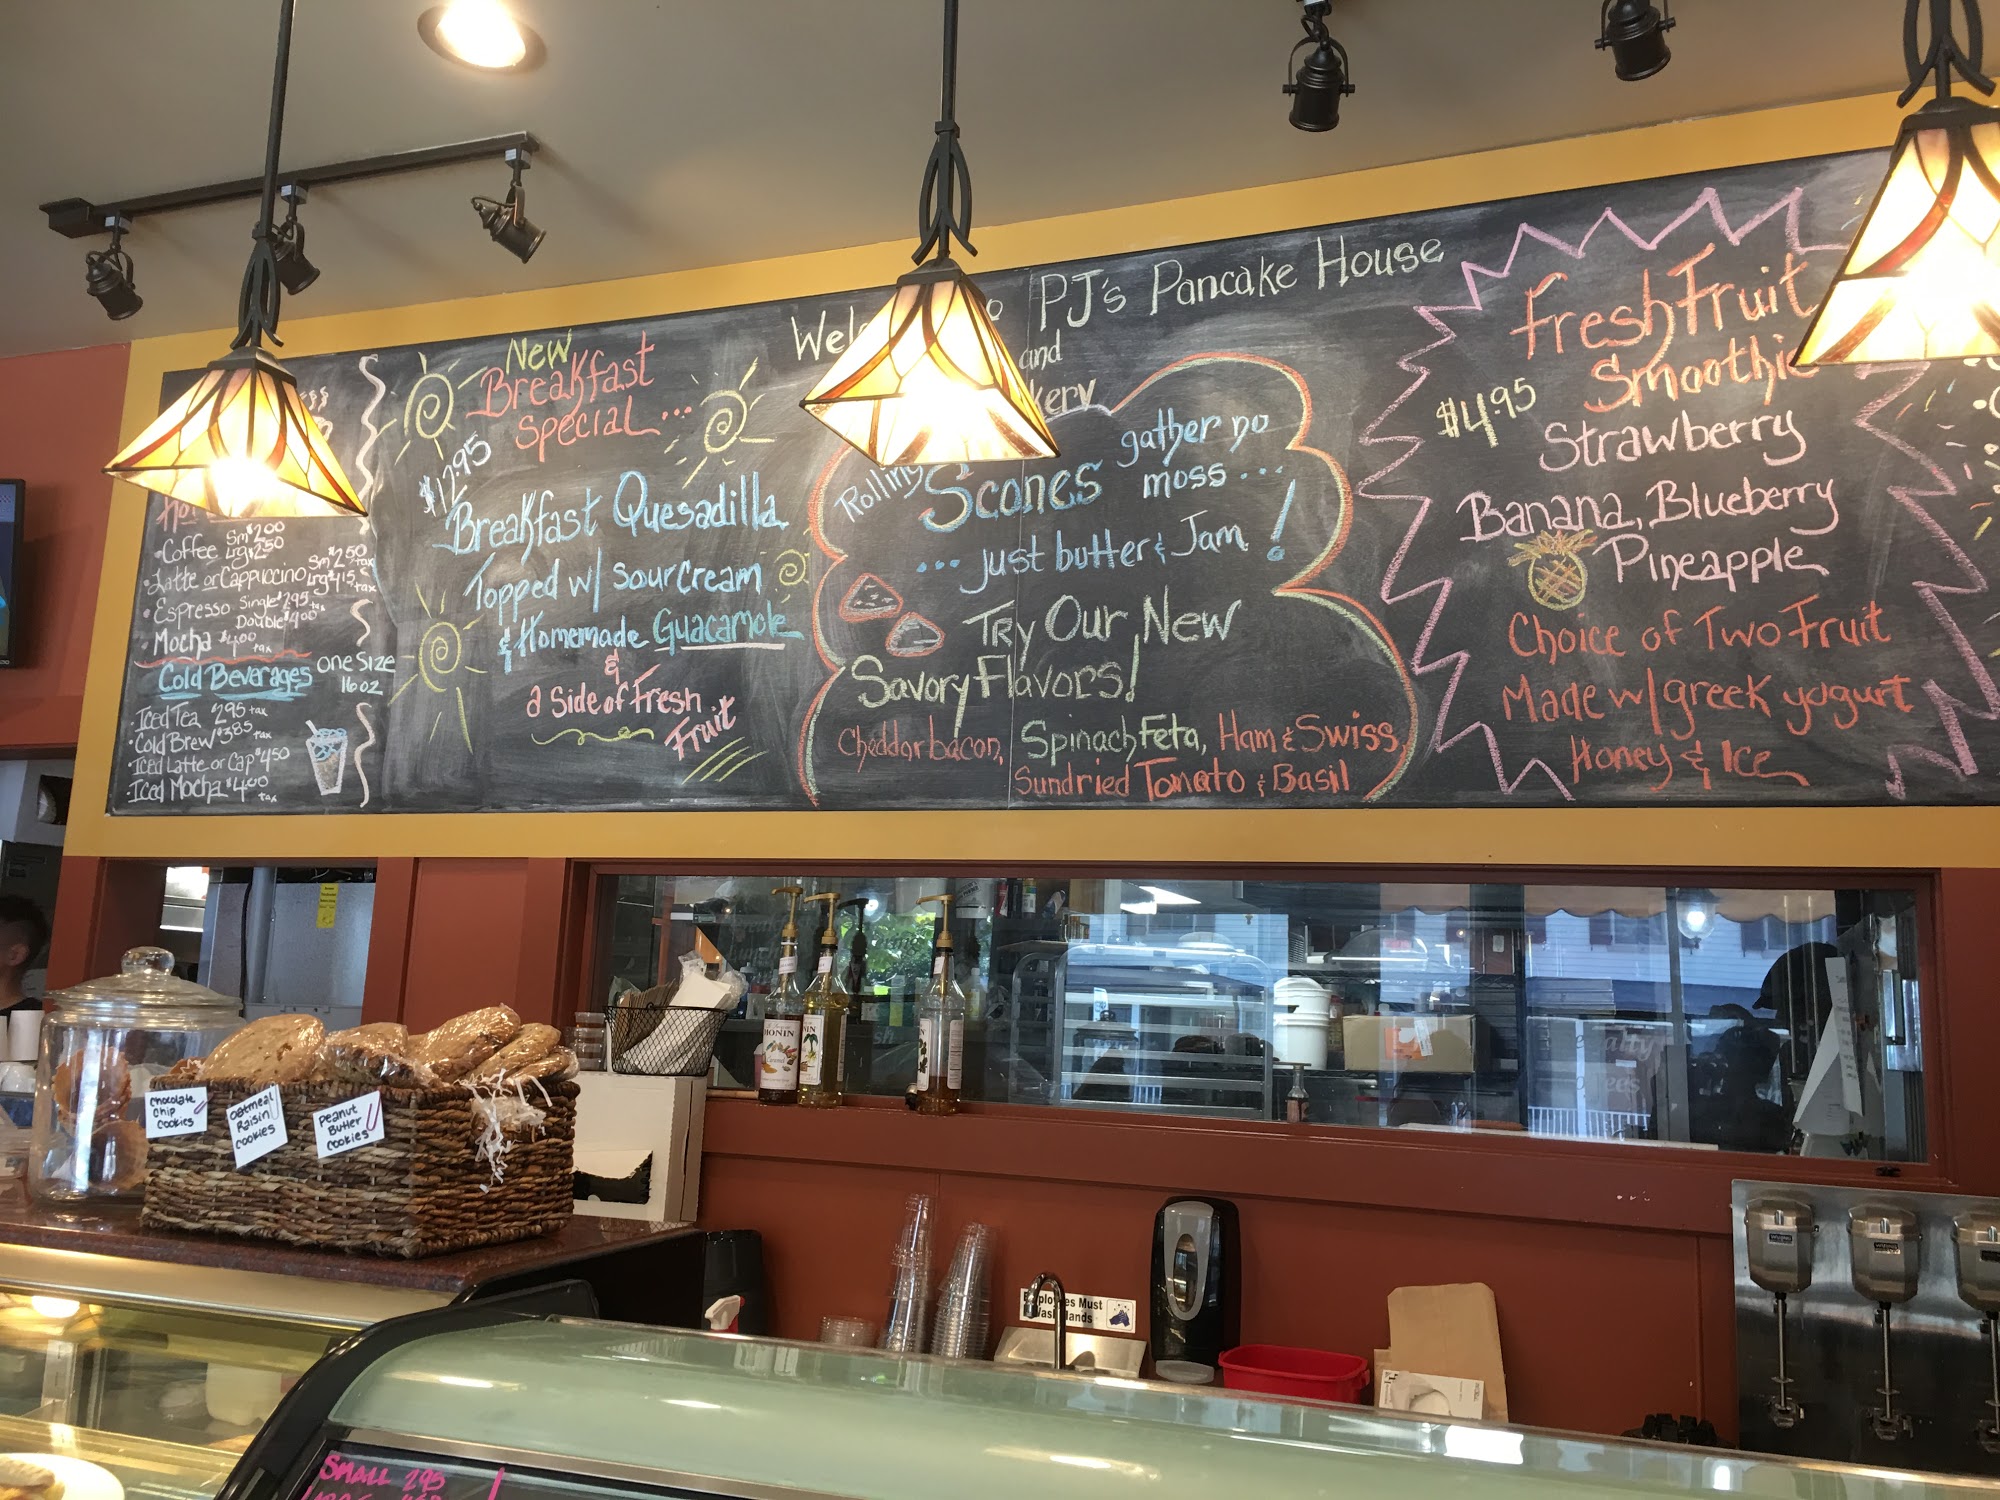 Welcome to PJ's Pancake House
and
Bakery
Coffee Sm $2.00
Lrg $2.50
Latte or Cappuccino Sm $2.50
Lrg $4.15 tax
Espresso Single $2.95 tax
Double $4.00
Mocha $4.00 tax
Cold Beverages one Size
16oz
Iced Tea $2.95 tax
Cold Brew $3.85 tax
Iced Latte or Cap $4.50
Iced Mocha $4.00 tax
New
Breakfast
Special...
$12.95
Breakfast Quesadilla
Topped w/ sour cream
& Homemade Guacamole
&
a side of Fresh
Fruit
Rolling Scones gather no
moss...
...just butter & Jam!
Try Our New
Savory Flavors!
Cheddar bacon, Spinach Feta, Ham & Swiss,
Sundried Tomato & Basil
Fresh Fruit
Smoothie
$4.95
Strawberry
Banana, Blueberry
Pineapple
Choice of Two Fruit
Made w/ greek yogurt
Honey & Ice
Chocolate
Chip
Cookies
Oatmeal
Raisin
Cookies
Peanut
Butter
Cookies
MONIN
Employees Must
Wash Hands
SMALL 295